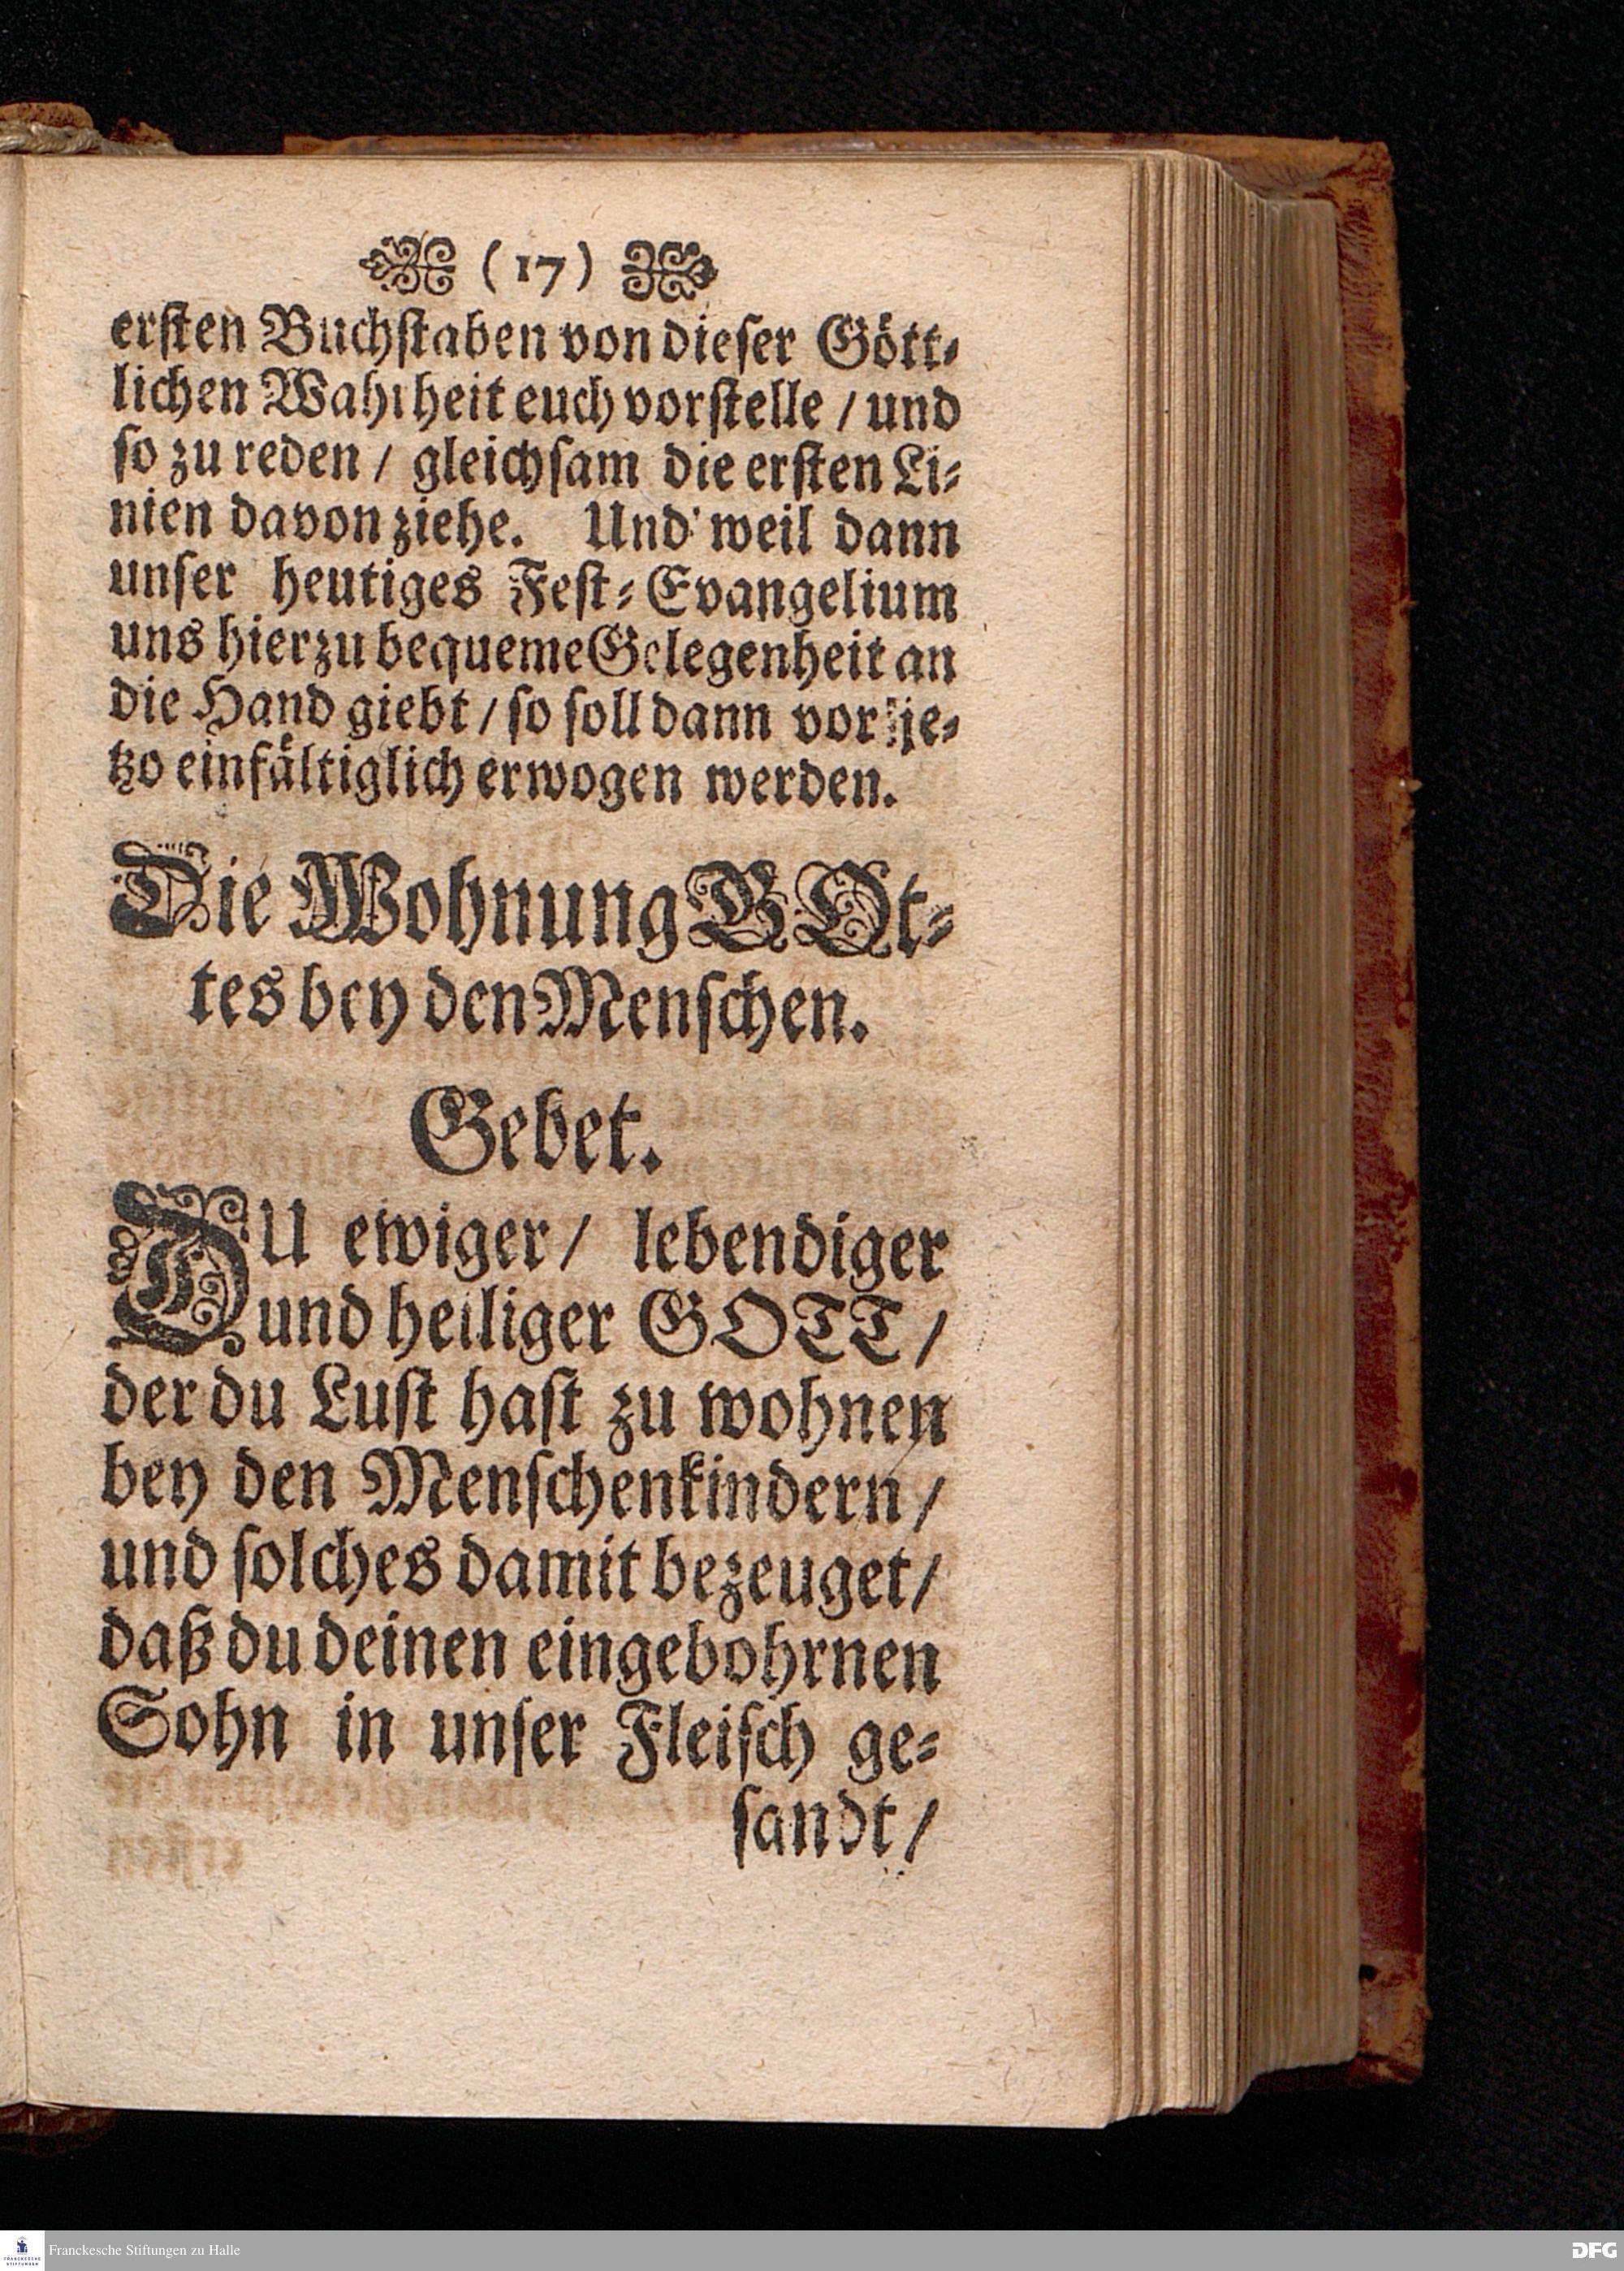 (17)
ersten Buchstaben von dieser Gött-
lichen Wahrheit euch vorstelle / und
so zu reden / gleichsam die ersten Li-
nien davon ziehe. Und weil dann
unser heutiges Fest-Evangelium
uns hierzu bequeme Gelegenheit an
die Hand giebt / so soll dann vor je-
tzo einfältiglich erwogen werden.
Die Wohnung GOt-
tes bey den Menschen.
Gebet.
DU ewiger / lebendiger
und heiliger GOTT /
der du Lust hast zu wohnen
bey den Menschenkindern /
und solches damit bezeuget /
daß du deinen eingebohrnen
Sohn in unser Fleisch ge-
sandt /
FRANCKESCHE STIFTUNGEN
Franckesche Stiftungen zu Halle
DFG